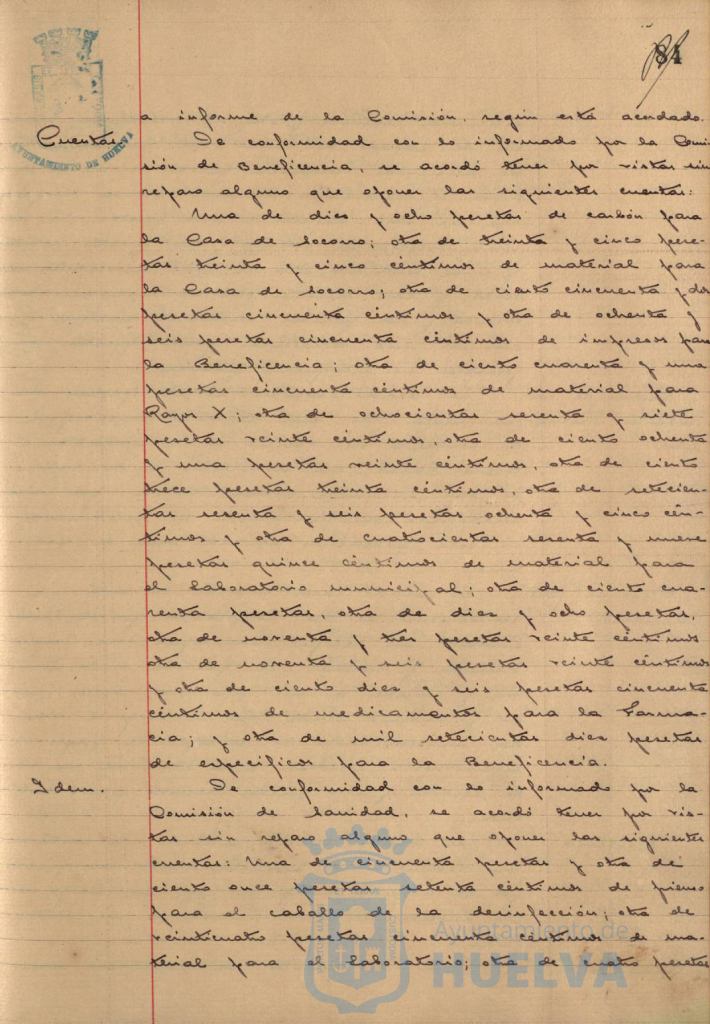 84
AYUNTAMIENTO DE HUELVA
a informe de la Comisión, según está acordado.
Cuentas. De conformidad con lo informado por la Comi-
sión de Beneficencia, se acordó tener por vistas sin
reparo alguno que oponer las siguientes cuentas:
Una de dies y ocho pesetas de carbón para
la Casa de Socorro; otra de treinta y cinco pese-
tas treinta y cinco céntimos de material para
la Casa de Socorro; otra de ciento cincuenta y dos
pesetas cincuenta céntimos y otra de ochenta y
seis pesetas cincuenta céntimos de impresos para
la Beneficencia; otra de ciento cuarenta y una
pesetas cincuenta céntimos de material para
Rayos X; otra de ochocientas sesenta y siete
pesetas veinte céntimos, otra de ciento ochenta
y una pesetas veinte céntimos, otra de ciento
trece pesetas treinta céntimos, otra de setecien-
tas sesenta y seis pesetas ochenta y cinco cén-
timos y otra de cuatrocientas sesenta y nueve
pesetas quince céntimos de material para
el Laboratorio municipal; otra de ciento cua-
renta pesetas, otra de dies y ocho pesetas,
otra de noventa y tres pesetas veinte céntimos
otra de noventa y seis pesetas veinte céntimos
y otra de ciento dies y seis pesetas cincuenta
céntimos de medicamentos para la Farma-
cia; y otra de mil setecientas dies pesetas
de específicos para la Beneficencia.
Idem. De conformidad con lo informado por la
Comisión de Sanidad, se acordó tener por vis-
tas sin reparo alguno que oponer las siguientes
cuentas: Una de cincuenta pesetas y otra de
ciento once pesetas setenta céntimos de pienso
para el caballo de la desinfección; otra de
veinticuatro pesetas cincuenta céntimos de ma-
terial para el Laboratorio; otra de cuatro pesetas
Ayuntamiento de
HUELVA